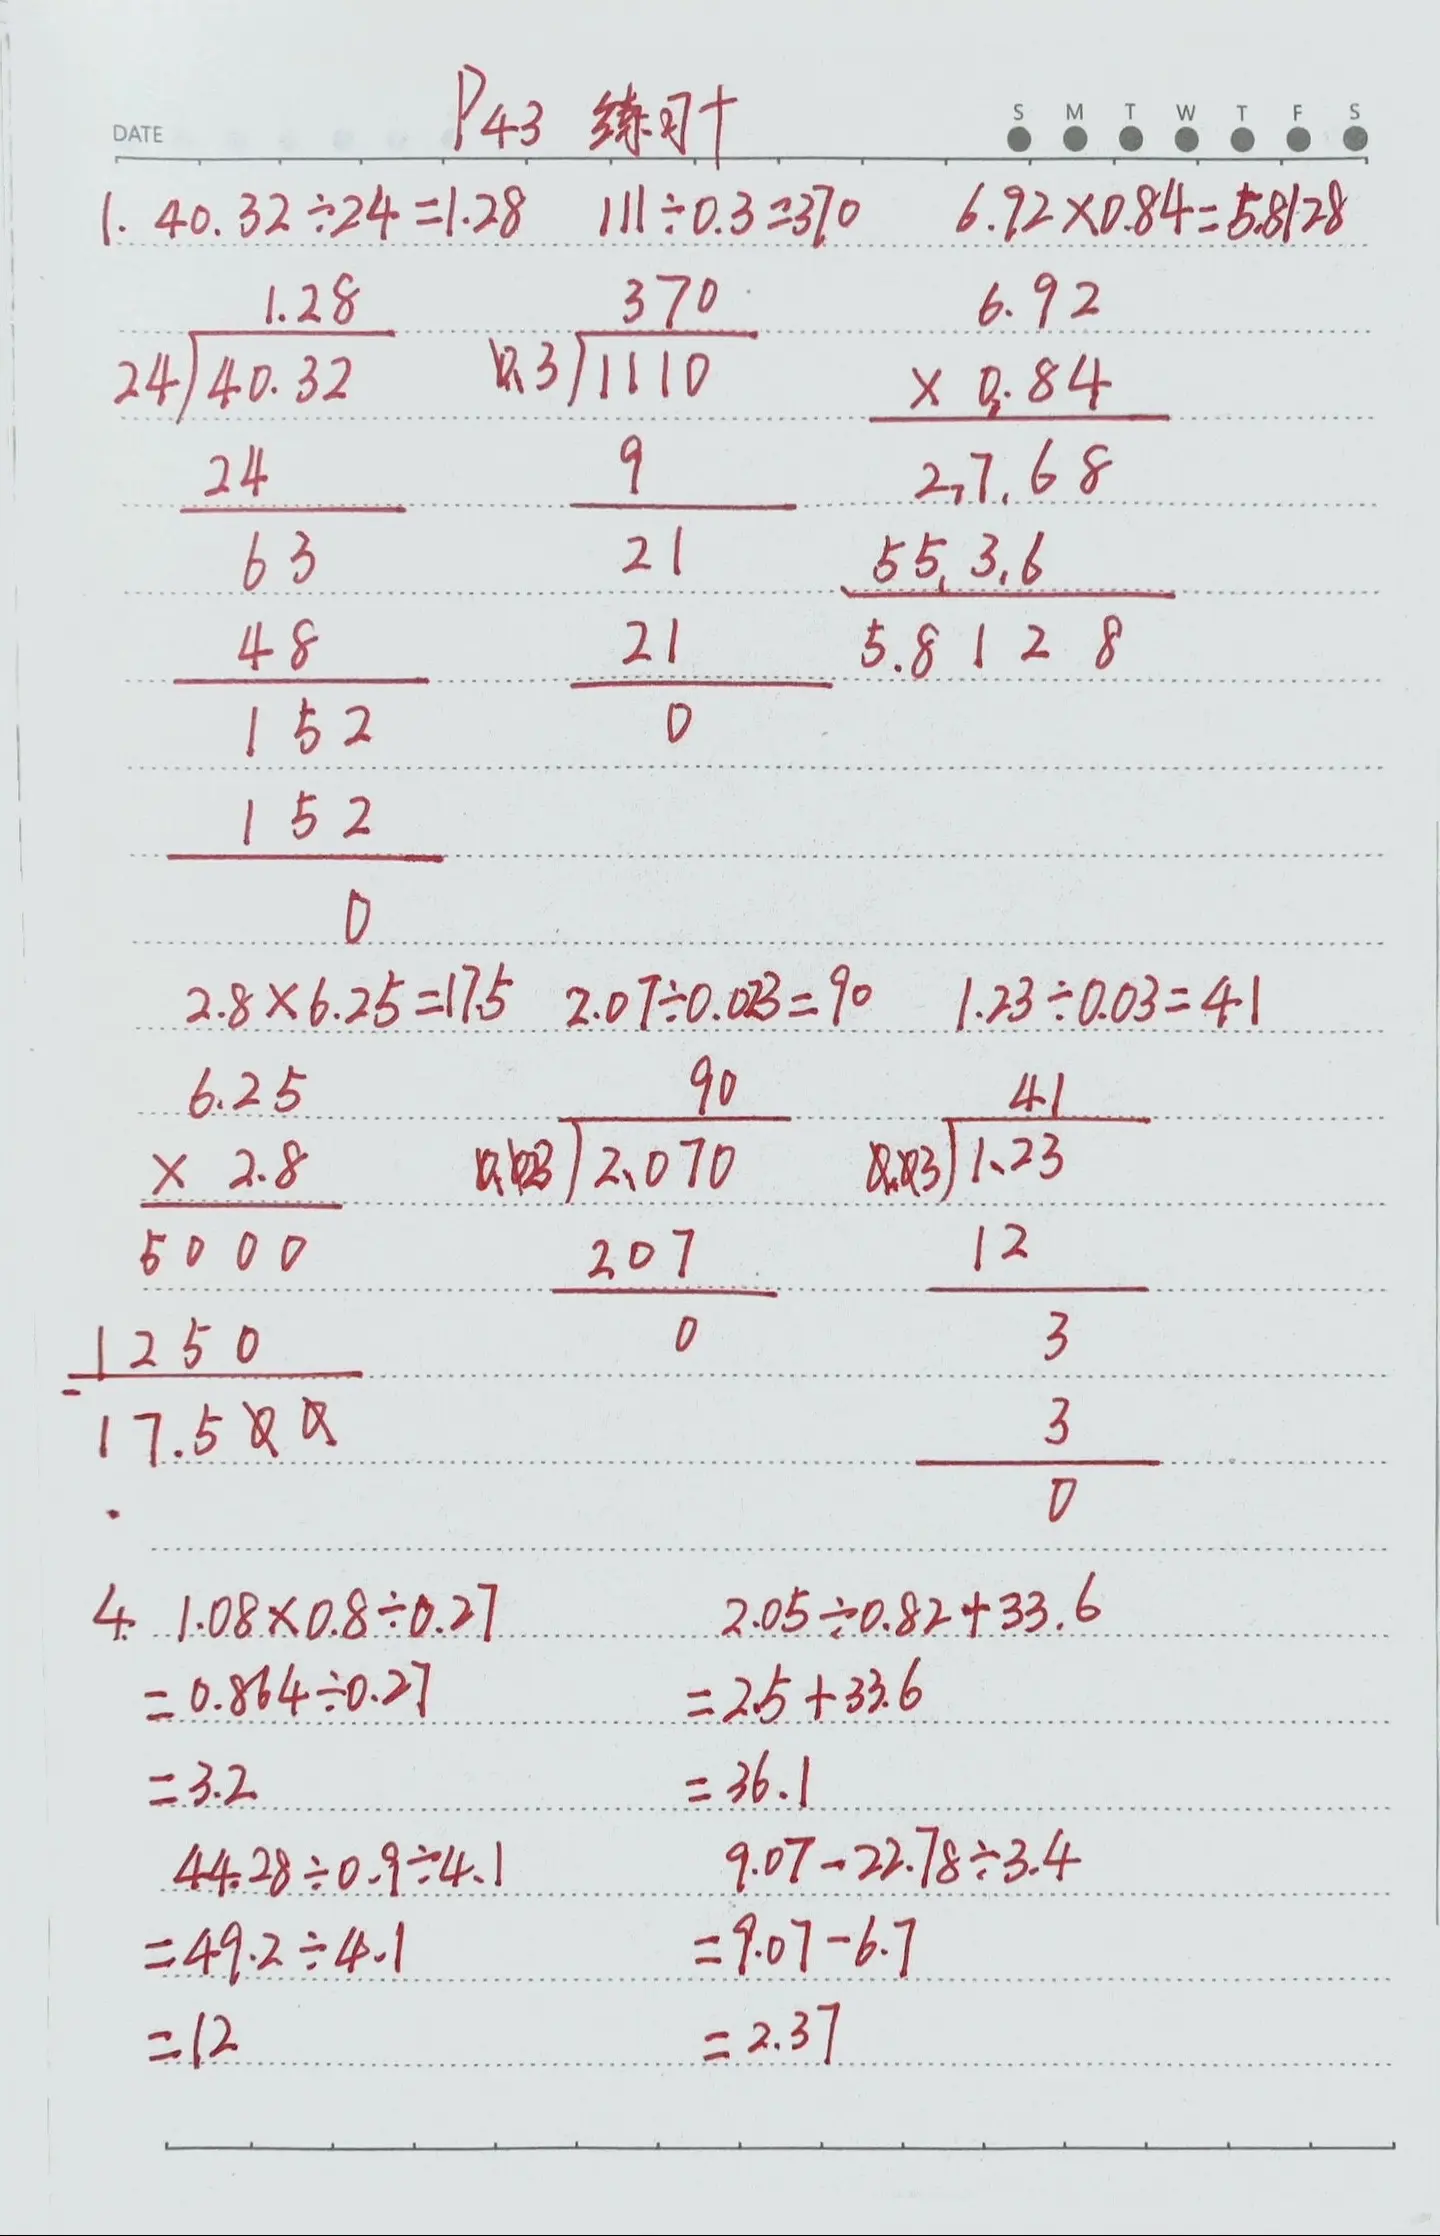 P43 练习十
DATE S M T W T F S
1. 40.32÷24=1.28 111÷0.3=370 6.92×0.84=5.8128
1.28 370 6.92
24)40.32 0.3)1110 × 0.84
24 9 2768
63 21 5536
48 21 5.8128
152 0
152
0
2.8×6.25=17.5 2.07÷0.023=90 1.23÷0.03=41
6.25 90 41
× 2.8 0.023)2.070 0.03)1.23
5000 207 12
1250 0 3
17.500 3
0
4. 1.08×0.8÷0.27 2.05÷0.82+33.6
=0.864÷0.27 =2.5+33.6
=3.2 =36.1
44.28÷0.9÷4.1 9.07-22.78÷3.4
=49.2÷4.1 =9.07-6.7
=12 =2.37